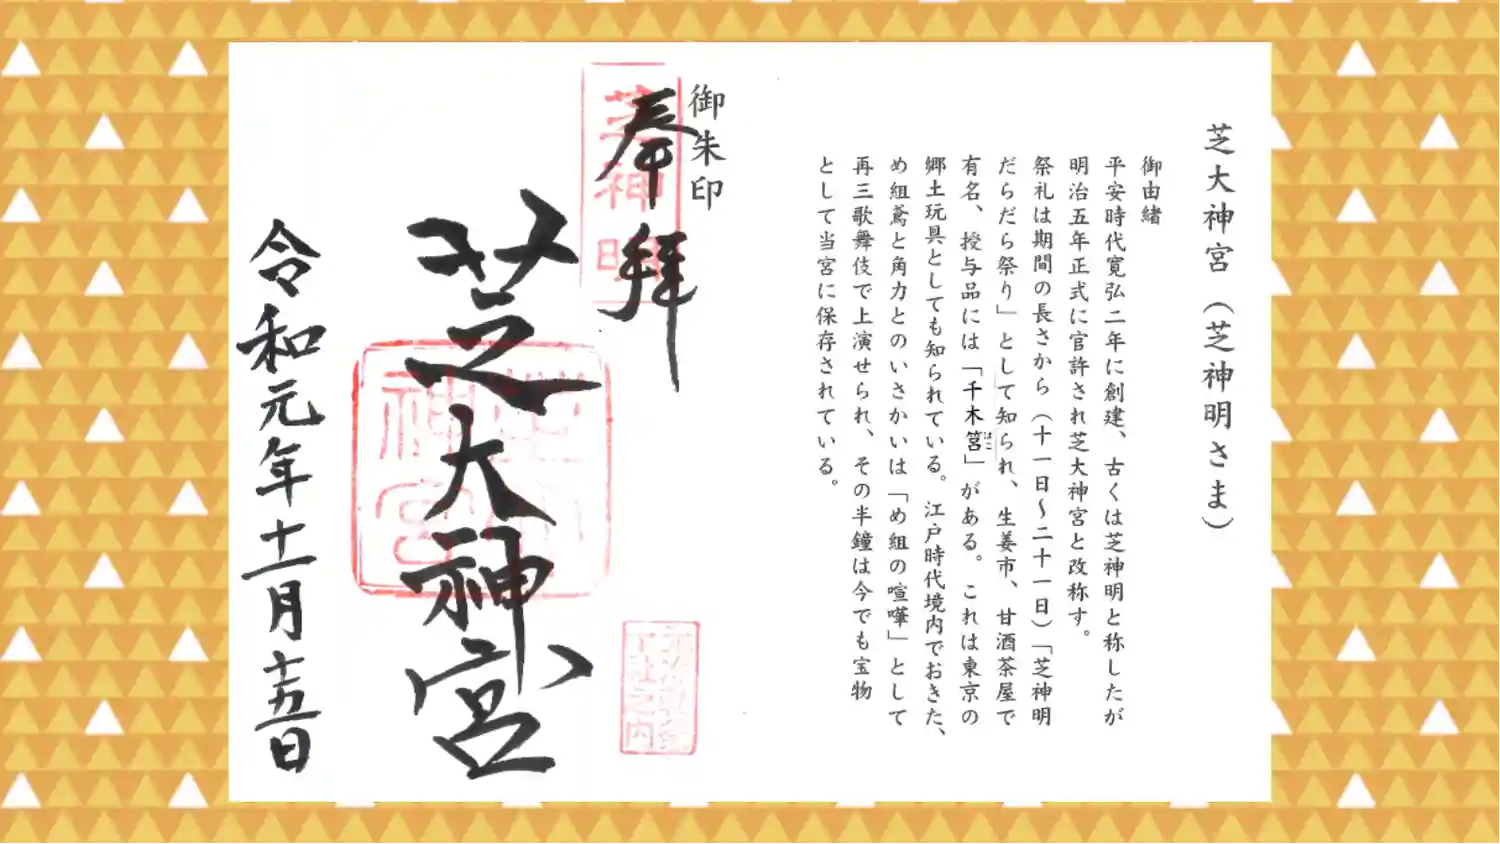 芝大神宮（芝神明さま）
御由緒
平安時代寛弘二年に創建、古くは芝神明と称したが
明治五年正式に官許され芝大神宮と改称す。
祭礼は期間の長さから（十一日～二十一日）「芝神明
だらだら祭り」として知られ、生姜市、甘酒茶屋で
有名、授与品には「千木筥」がある。これは東京の
はこ
郷土玩具としても知られている。江戸時代境内でおきた、
め組鳶と角力とのいさかいは「め組の喧嘩」として
再三歌舞伎で上演せられ、その半鐘は今でも宝物
として当宮に保存されている。
御朱印
奉拝
芝神明
芝大神宮
令和元年十一月十五日